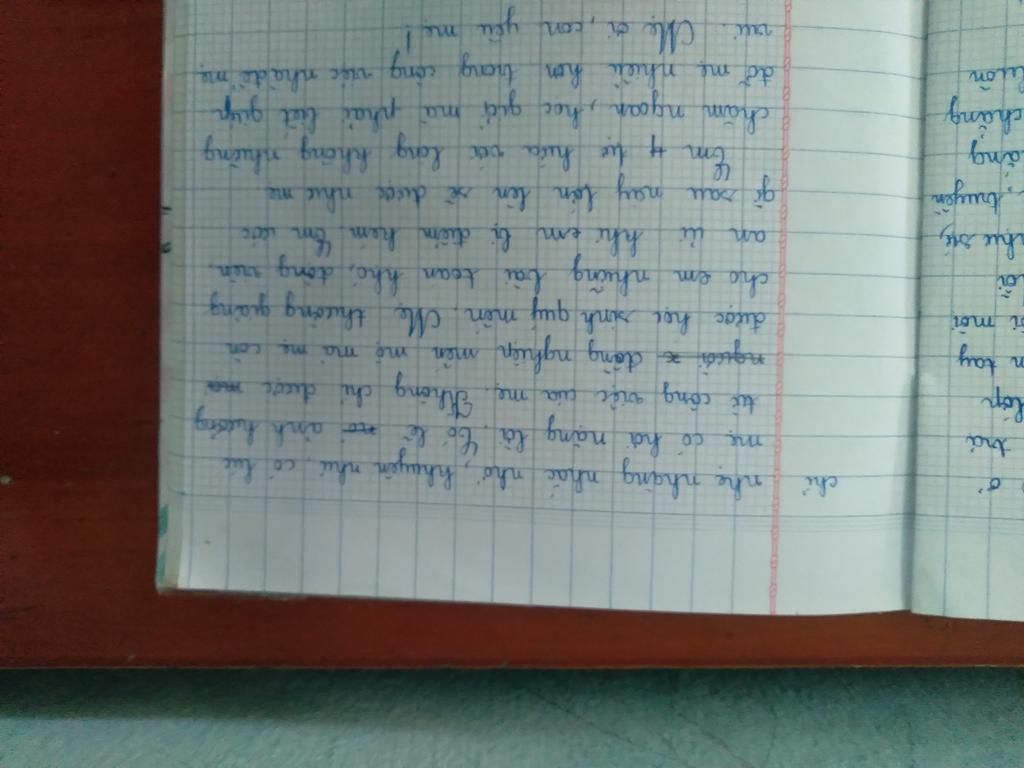 ở
trả
lớp
tay
mới
như
truyền
chẳng
luôn
chỉ nhẹ nhàng nhắc nhở, khuyên nhủ, có lúc
mẹ có hơi nặng lời. Có lẽ nó ảnh hưởng
từ công việc của mẹ. Không chỉ được
người đồng nghiệp mến mộ mà mẹ còn
được học sinh quý mến. Mẹ thường giảng
cho em những bài toán khó, động viên
an ủi khi em bị điểm kém. Em ước
gì sau này lớn lên sẽ được như mẹ
Em tự hứa với lòng không những
chăm ngoan, học giỏi mà phải biết giúp
đỡ mẹ nhiều hơn trong công việc nhà để mẹ
vui. Mẹ ơi, con yêu mẹ!